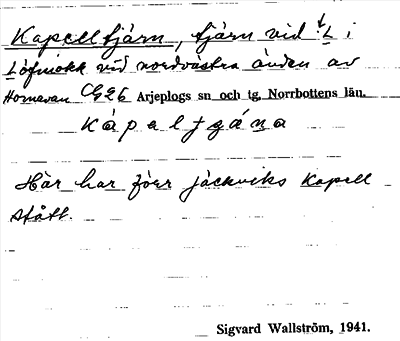 Kapelltjärn, tjärn vid L i
Löfmokk vid nordvästra änden av
Hornavan C926 Arjeplogs sn och tg, Norrbottens län.
Kápaltjána
Här har förr Jäckviks Kapell
stått.
Sigvard Wallström, 1941.